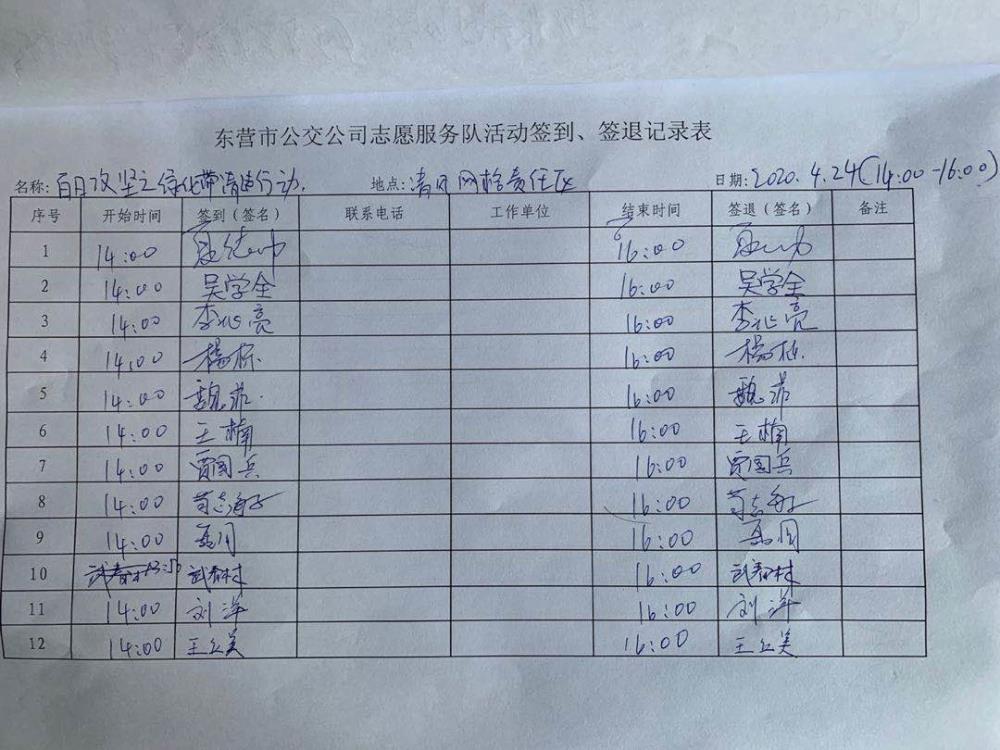 东营市公交公司志愿服务队活动签到、签退记录表
名称: 百日攻坚之绿化带清洁行动. 地点: 清风网格责任区 日期: 2020.4.24(14:00-16:00)
序号 开始时间 签到（签名） 联系电话 工作单位 结束时间 签退（签名） 备注
1 14:00 16:00
2 14:00 吴学全 16:00 吴学全
3 14:00 李兆亮 16:00 李兆亮
4 14:00 杨栋 16:00 杨栋
5 14:00 魏菲 16:00 魏菲
6 14:00 王楠 16:00 王楠
7 14:00 贾国兵 16:00 贾国兵
8 14:00 苟志海 16:00 苟志海
9 14:00 16:00
10 13:50 武春林 16:00 武春林
11 14:00 刘洋 16:00 刘洋
12 14:00 王公美 16:00 王公美